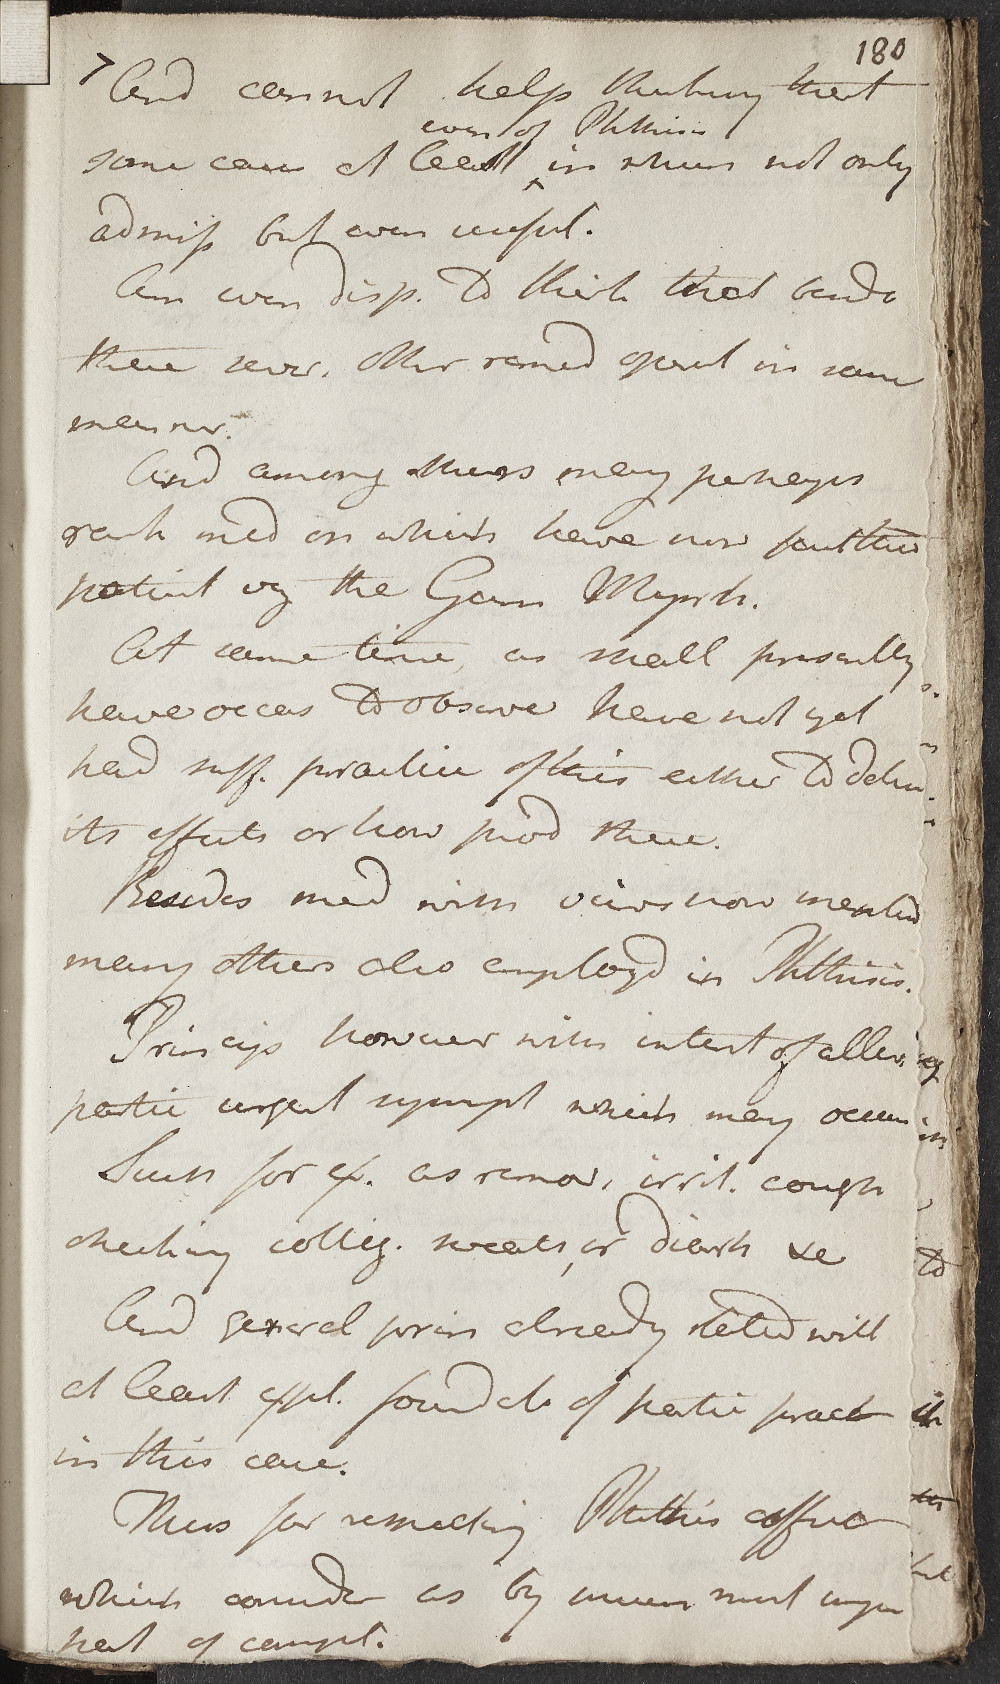 180
And cannot help thinking that
even of Phthisis
some cases at least in whom not only
admiss but even useful.
Am even disp. to think that besid
these sever. other remed operat in same
manner.
And among others may perhaps
rank med on which have now put this
patient viz the Gum Myrrh.
At same time, as shall presently
have occas to observe have not yet
had suff. practice of this either to deter
its effects or how prod these.
Besides med with views now mention
many others also employd in Phthisis.
Princip however with intent of allev
partic urgent sympt which may occur
Such for ex. as remov. irrit. cough
checking colliq. sweats, or diarrh &c
And general prin already stated will
at least expl. foundat of partic pract
in this case.
Thus for remedying Phthis affect
which consider as by much most impor
part of compt.